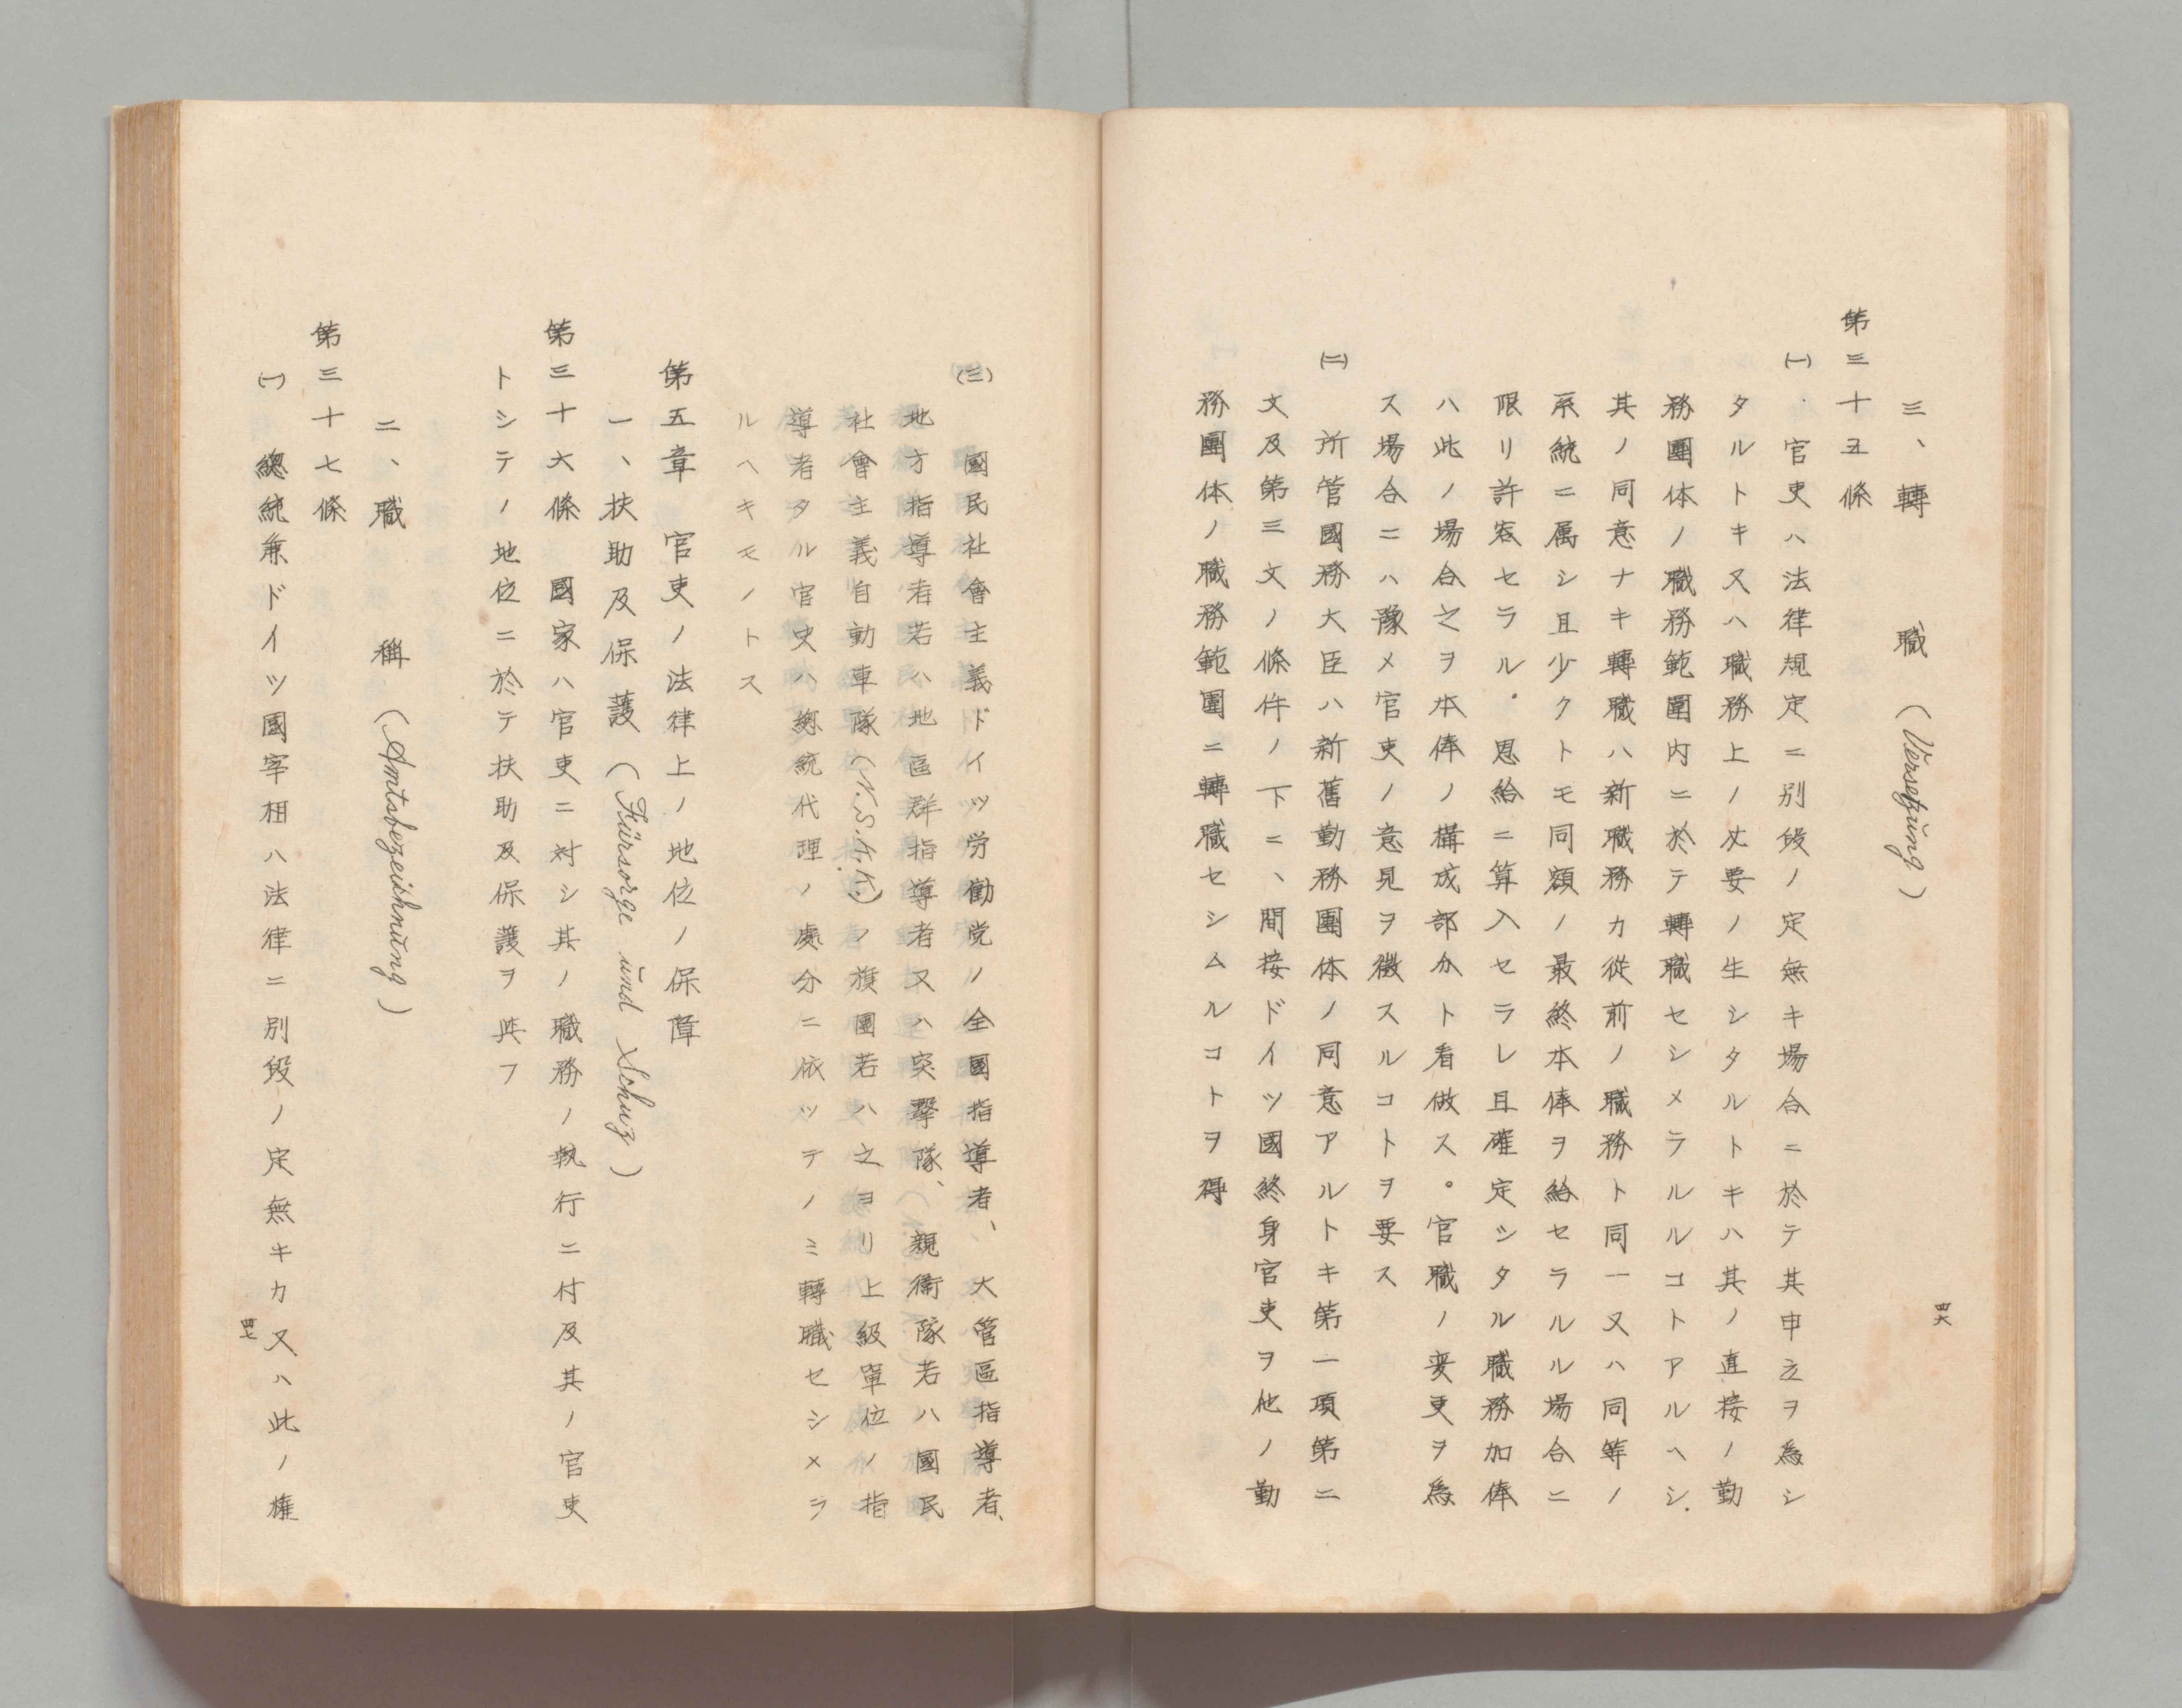 三、轉　職（Versetzung）
第三十五條
(一)官吏ハ法律規定ニ別段ノ定無キ場合ニ於テ其申立ヲ爲シ
タルトキ又ハ職務上ノ必要ノ生シタルトキハ其ノ直接ノ勤
務團体ノ職務範圍内ニ於テ轉職セシメラルルコトアルヘシ．
其ノ同意ナキ轉職ハ新職務カ從前ノ職務ト同一又ハ同等ノ
系統ニ属シ且少クトモ同額ノ最終本俸ヲ給セラルル場合ニ
限リ許容セラル．恩給ニ算入セラレ且確定シタル職務加俸
ハ此ノ場合之ヲ本俸ノ構成部分ト看做ス。官職ノ変更ヲ爲
ス場合ニハ豫メ官吏ノ意見ヲ徴スルコトヲ要ス
(二)所管國務大臣ハ新舊勤務團体ノ同意アルトキ第一項第二
文及第三文ノ條件ノ下ニ、間接ドイツ國終身官吏ヲ他ノ勤
務團体ノ職務範圍ニ轉職セシムルコトヲ得
四六
(三)國民社會主義ドイツ労働党ノ全國指導者、大管區指導者、
地方指導者若ハ地區群指導者又ハ突撃隊、親衛隊若ハ國民
社會主義自動車隊（N.S.K.K.）ノ旗團若ハ之ヨリ上級單位ノ指
導者タル官吏ハ總統代理ノ處分ニ依ッテノミ轉職セシメラ
ルヘキモノトス
第五章　官吏ノ法律上ノ地位ノ保障
一、扶助及保護（Fürsorge und Schuz）
第三十六條　國家ハ官吏ニ対シ其ノ職務ノ執行ニ付及其ノ官吏
トシテノ地位ニ於テ扶助及保護ヲ與フ
二、職　稱（Amtsbezeichnung）
第三十七條
(一)總統兼ドイツ國宰相ハ法律ニ別段ノ定無キカ又ハ此ノ権
四七